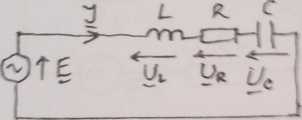 I L R C
E U_L U_R U_C